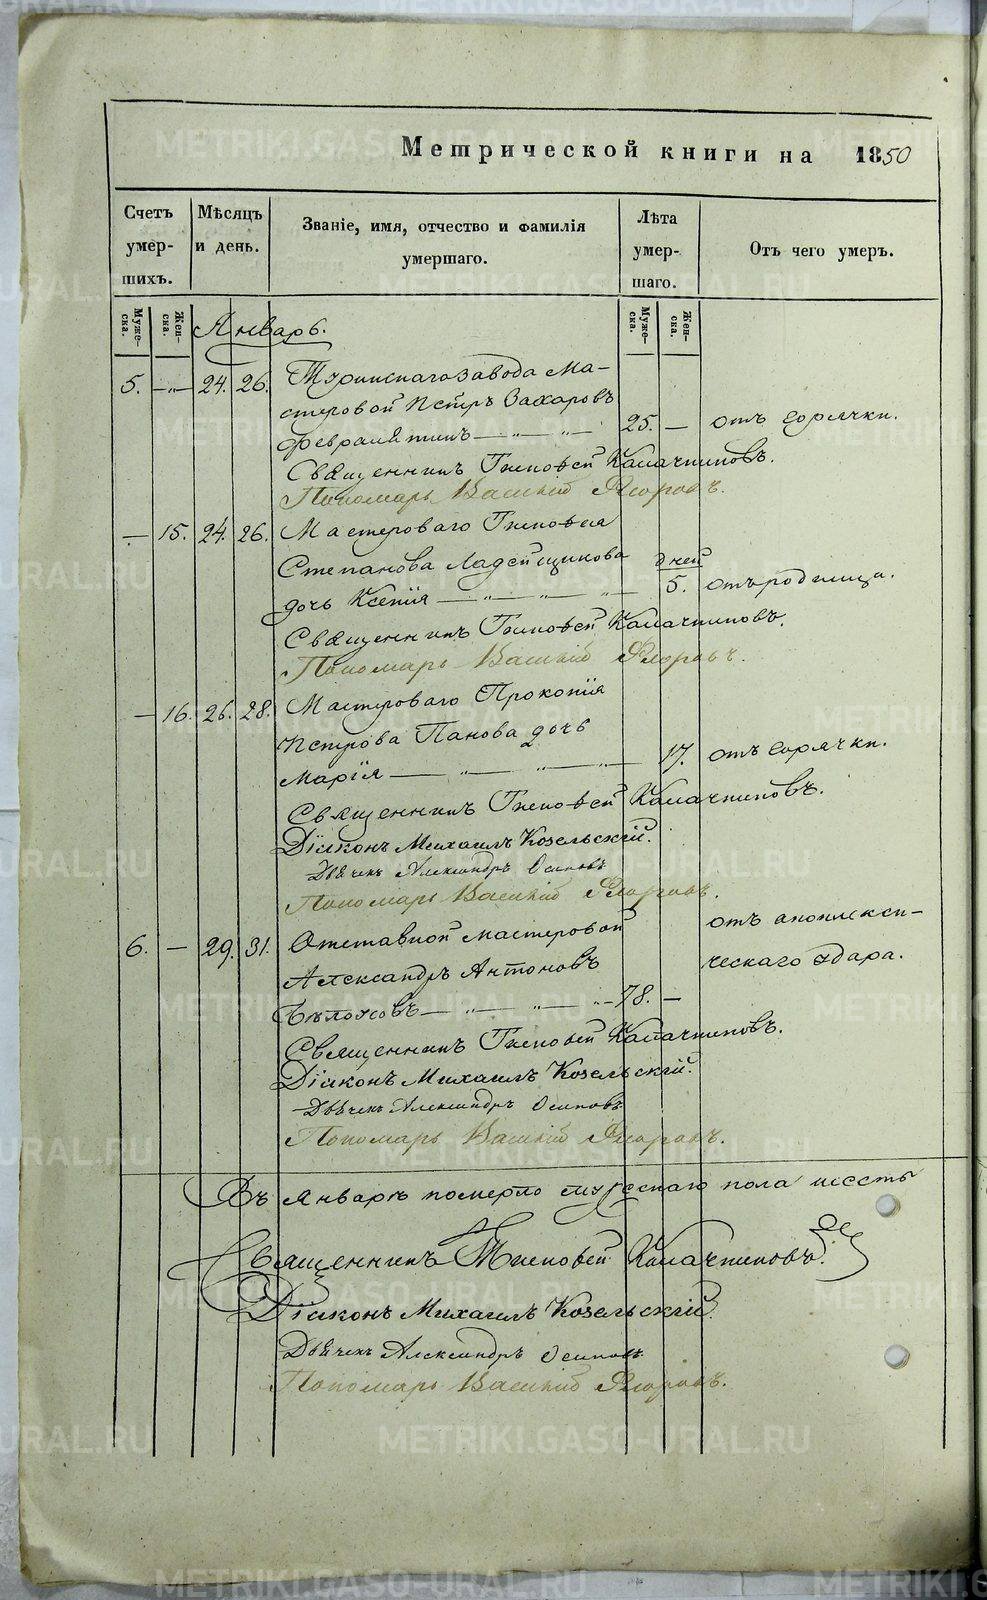 Метрической книги на 1850
Счетъ умер-шихъ.
Мѣсяцъ и день.
Званіе, имя, отчество и фамилія умершаго.
Лѣта умер-шаго.
Отъ чего умеръ.
Муже-ска.
Жен-ска.
Январь.
Муже-ска.
Жен-ска.
5. — 24. 26. Туринскаго завода Ма-
стеровой Петръ Захаровъ
25. — отъ горячки.
Священникъ Калачниковъ.
Пономарь Василій Флоровъ.
— 15. 24. 26. Мастероваго
Степанова Ладейщикова дней
дочь Ксенія 5. отъ родимца.
Священникъ Калачниковъ.
Пономарь Василій Флоровъ.
— 16. 26. 28. Мастероваго Прокопія
Петрова Панова дочь
Марія 17. отъ горячки.
Священникъ Калачниковъ.
Діаконъ Михаилъ Козельскій.
Дьячекъ Александръ Осиповъ
Пономарь Василій Флоровъ.
6. — 29. 31. Отставной мастеровой отъ апоплекси-
Александръ Антоновъ ческаго удара.
78. —
Священникъ Калачниковъ.
Діаконъ Михаилъ Козельскій.
Дьячекъ Александръ Осиповъ
Пономарь Василій Флоровъ.
Въ Январѣ померло мужескаго пола шесть
Священникъ Калачниковъ.
Діаконъ Михаилъ Козельскій.
Дьячекъ Александръ Осиповъ
Пономарь Василій Флоровъ.
METRIKI.GASO-URAL.RU